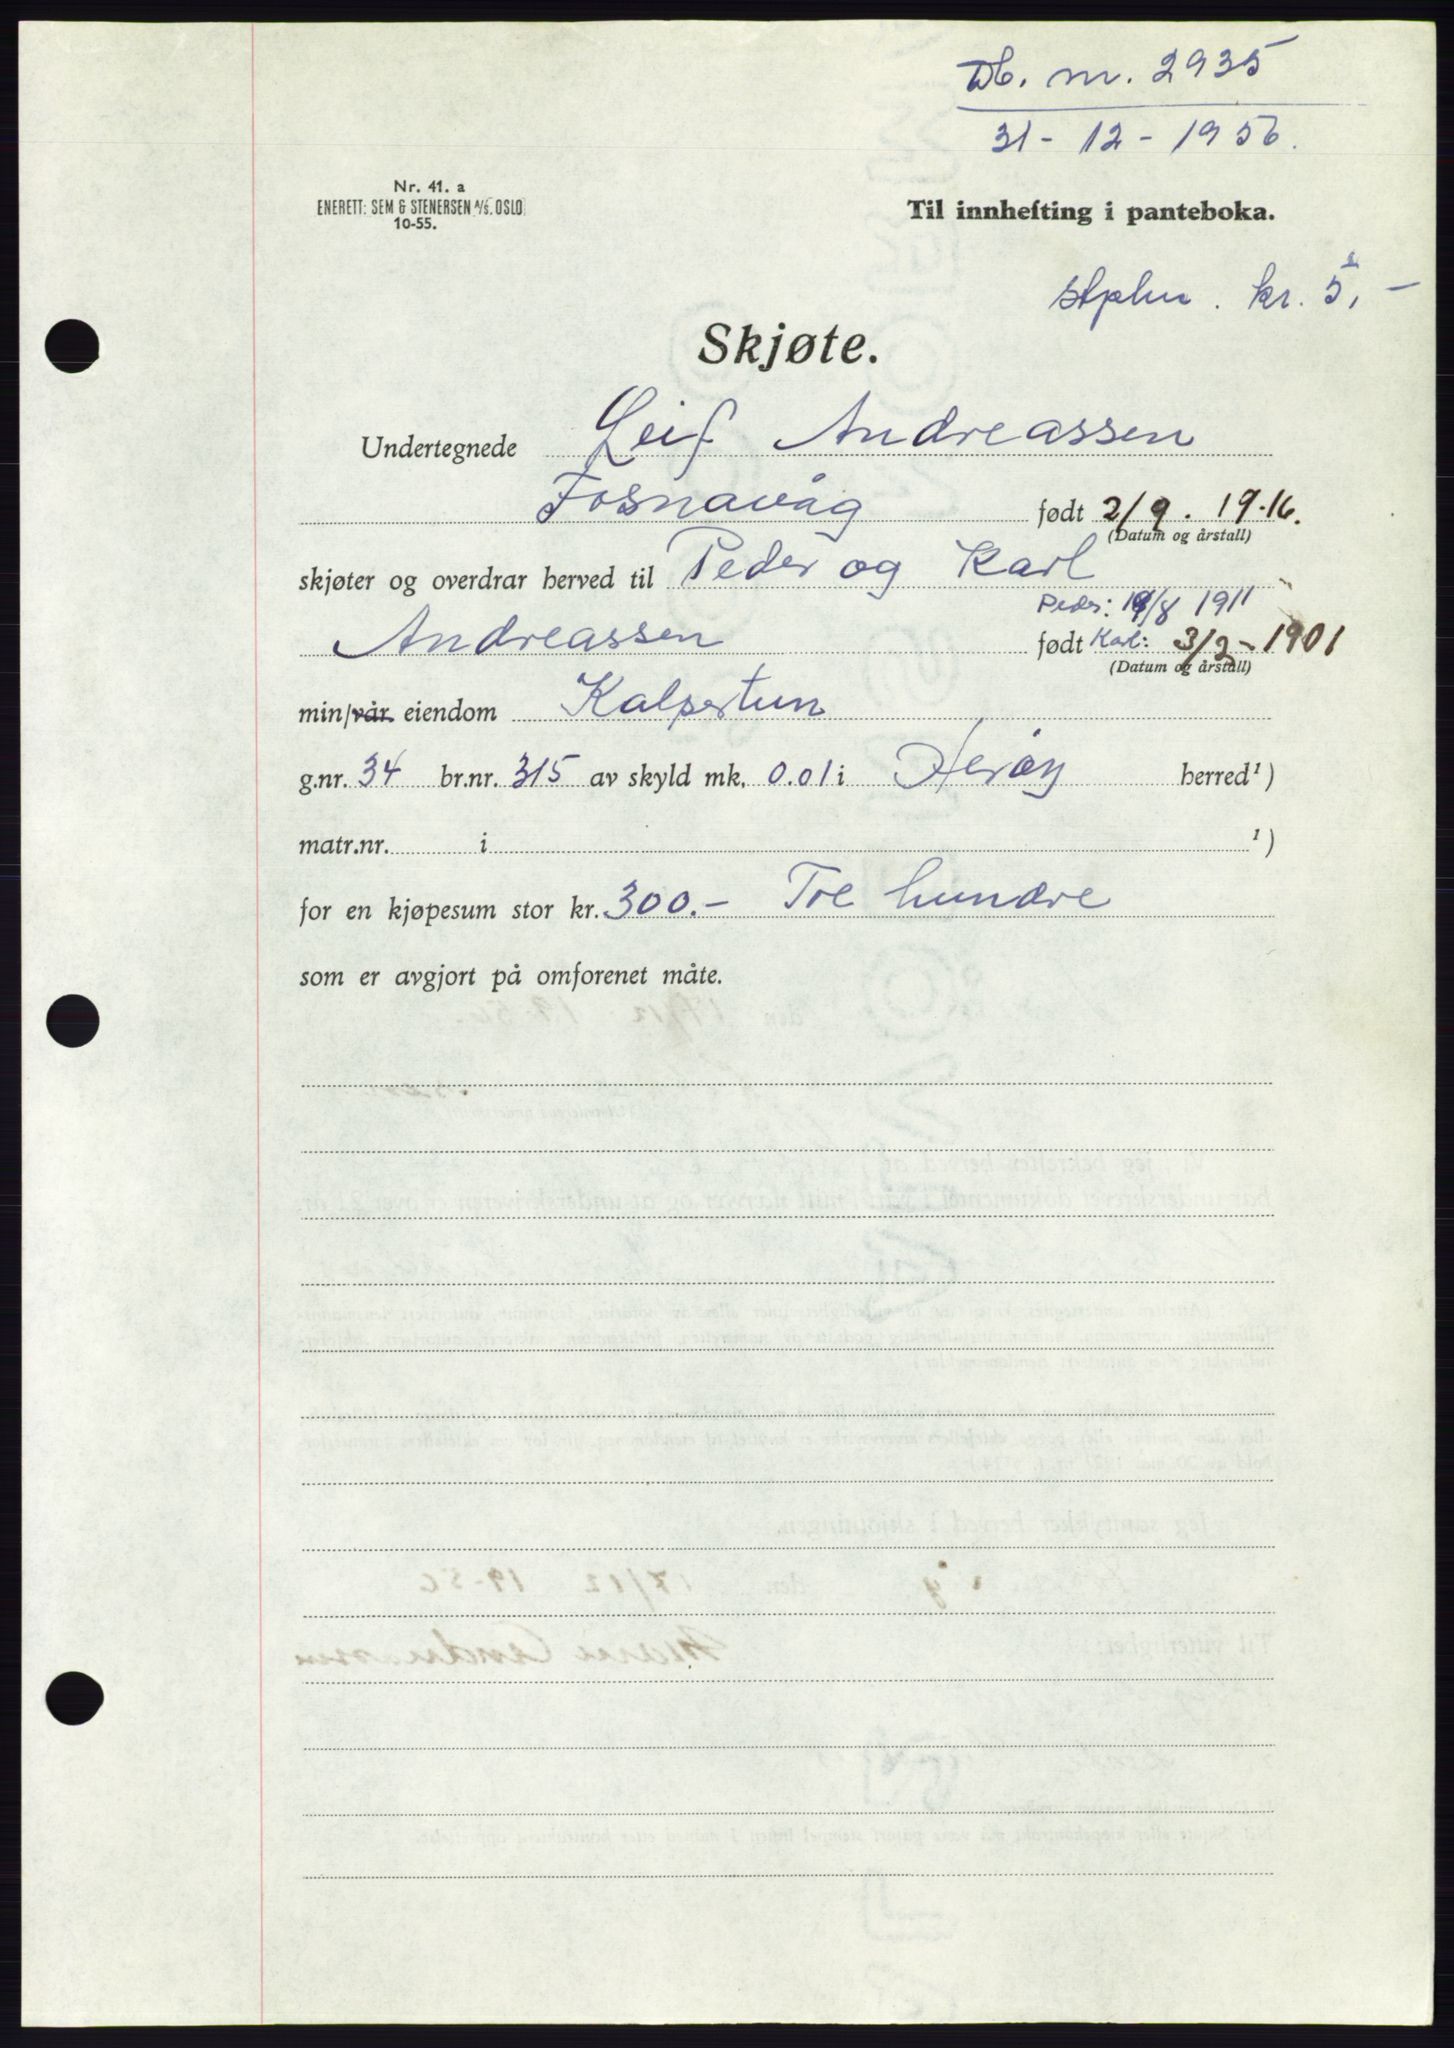 Db. nr. 2935
31-12-1956.
Nr. 41. a
ENERETT: SEM & STENERSEN A/S. OSLO
10-55.
Til innhefting i panteboka.
kr. 5,-
Skjøte.
Undertegnede Leif Andreassen
Fosnavåg født 2/9. 19.16.
(Datum og årstall)
skjøter og overdrar herved til Peder og Karl
Peder: 19/8 1911
Andreassen født Karl: 3/2-1901
(Datum og årstall)
min/vår eiendom Kalpertun
g.nr. 34 br.nr. 315 av skyld mk. 0.01 i Herøy herred¹)
matr.nr. i ¹)
for en kjøpesum stor kr. 300.- Tre hundre
som er avgjort på omforenet måte.